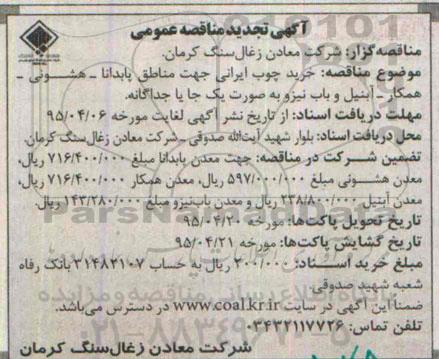 آگهی تجدید مناقصه عمومی
مناقصه‌گزار: شرکت معادن زغال‌سنگ کرمان.
موضوع مناقصه: خرید چوب ایرانی جهت مناطق پابدانا ـ هشونی ـ
همکار ـ آبنیل و باب نیزو به صورت یک جا یا جداگانه.
مهلت دریافت اسناد: از تاریخ نشر آگهی لغایت مورخه ۹۵/۰۴/۰۶
محل دریافت اسناد: بلوار شهید آیت‌الله صدوقی ـ شرکت معادن زغال‌سنگ کرمان.
تضمین شرکت در مناقصه: جهت معدن پابدانا مبلغ ۷۱۶/۴۰۰/۰۰۰ ریال،
معدن هشونی مبلغ ۵۹۷/۰۰۰/۰۰۰ ریال، معدن همکار ۷۱۶/۴۰۰/۰۰۰ ریال،
معدن آبنیل ۲۳۸/۸۰۰/۰۰۰ ریال و معدن باب‌نیزو مبلغ ۱۴۳/۲۸۰/۰۰۰ ریال.
تاریخ تحویل پاکت‌ها: مورخه ۹۵/۰۴/۲۰
تاریخ گشایش پاکت‌ها: مورخه ۹۵/۰۴/۲۱
مبلغ خرید اسناد: ۳۰۰/۰۰۰ ریال به حساب ۳۱۴۸۲۱۰۷ بانک رفاه
شعبه شهید صدوقی.
ضمناً این آگهی در سایت www.coal.kr.ir در دسترس می‌باشد.
تلفن تماس: ۰۳۴۳۲۱۱۷۷۲۶
شرکت معادن زغال‌سنگ کرمان